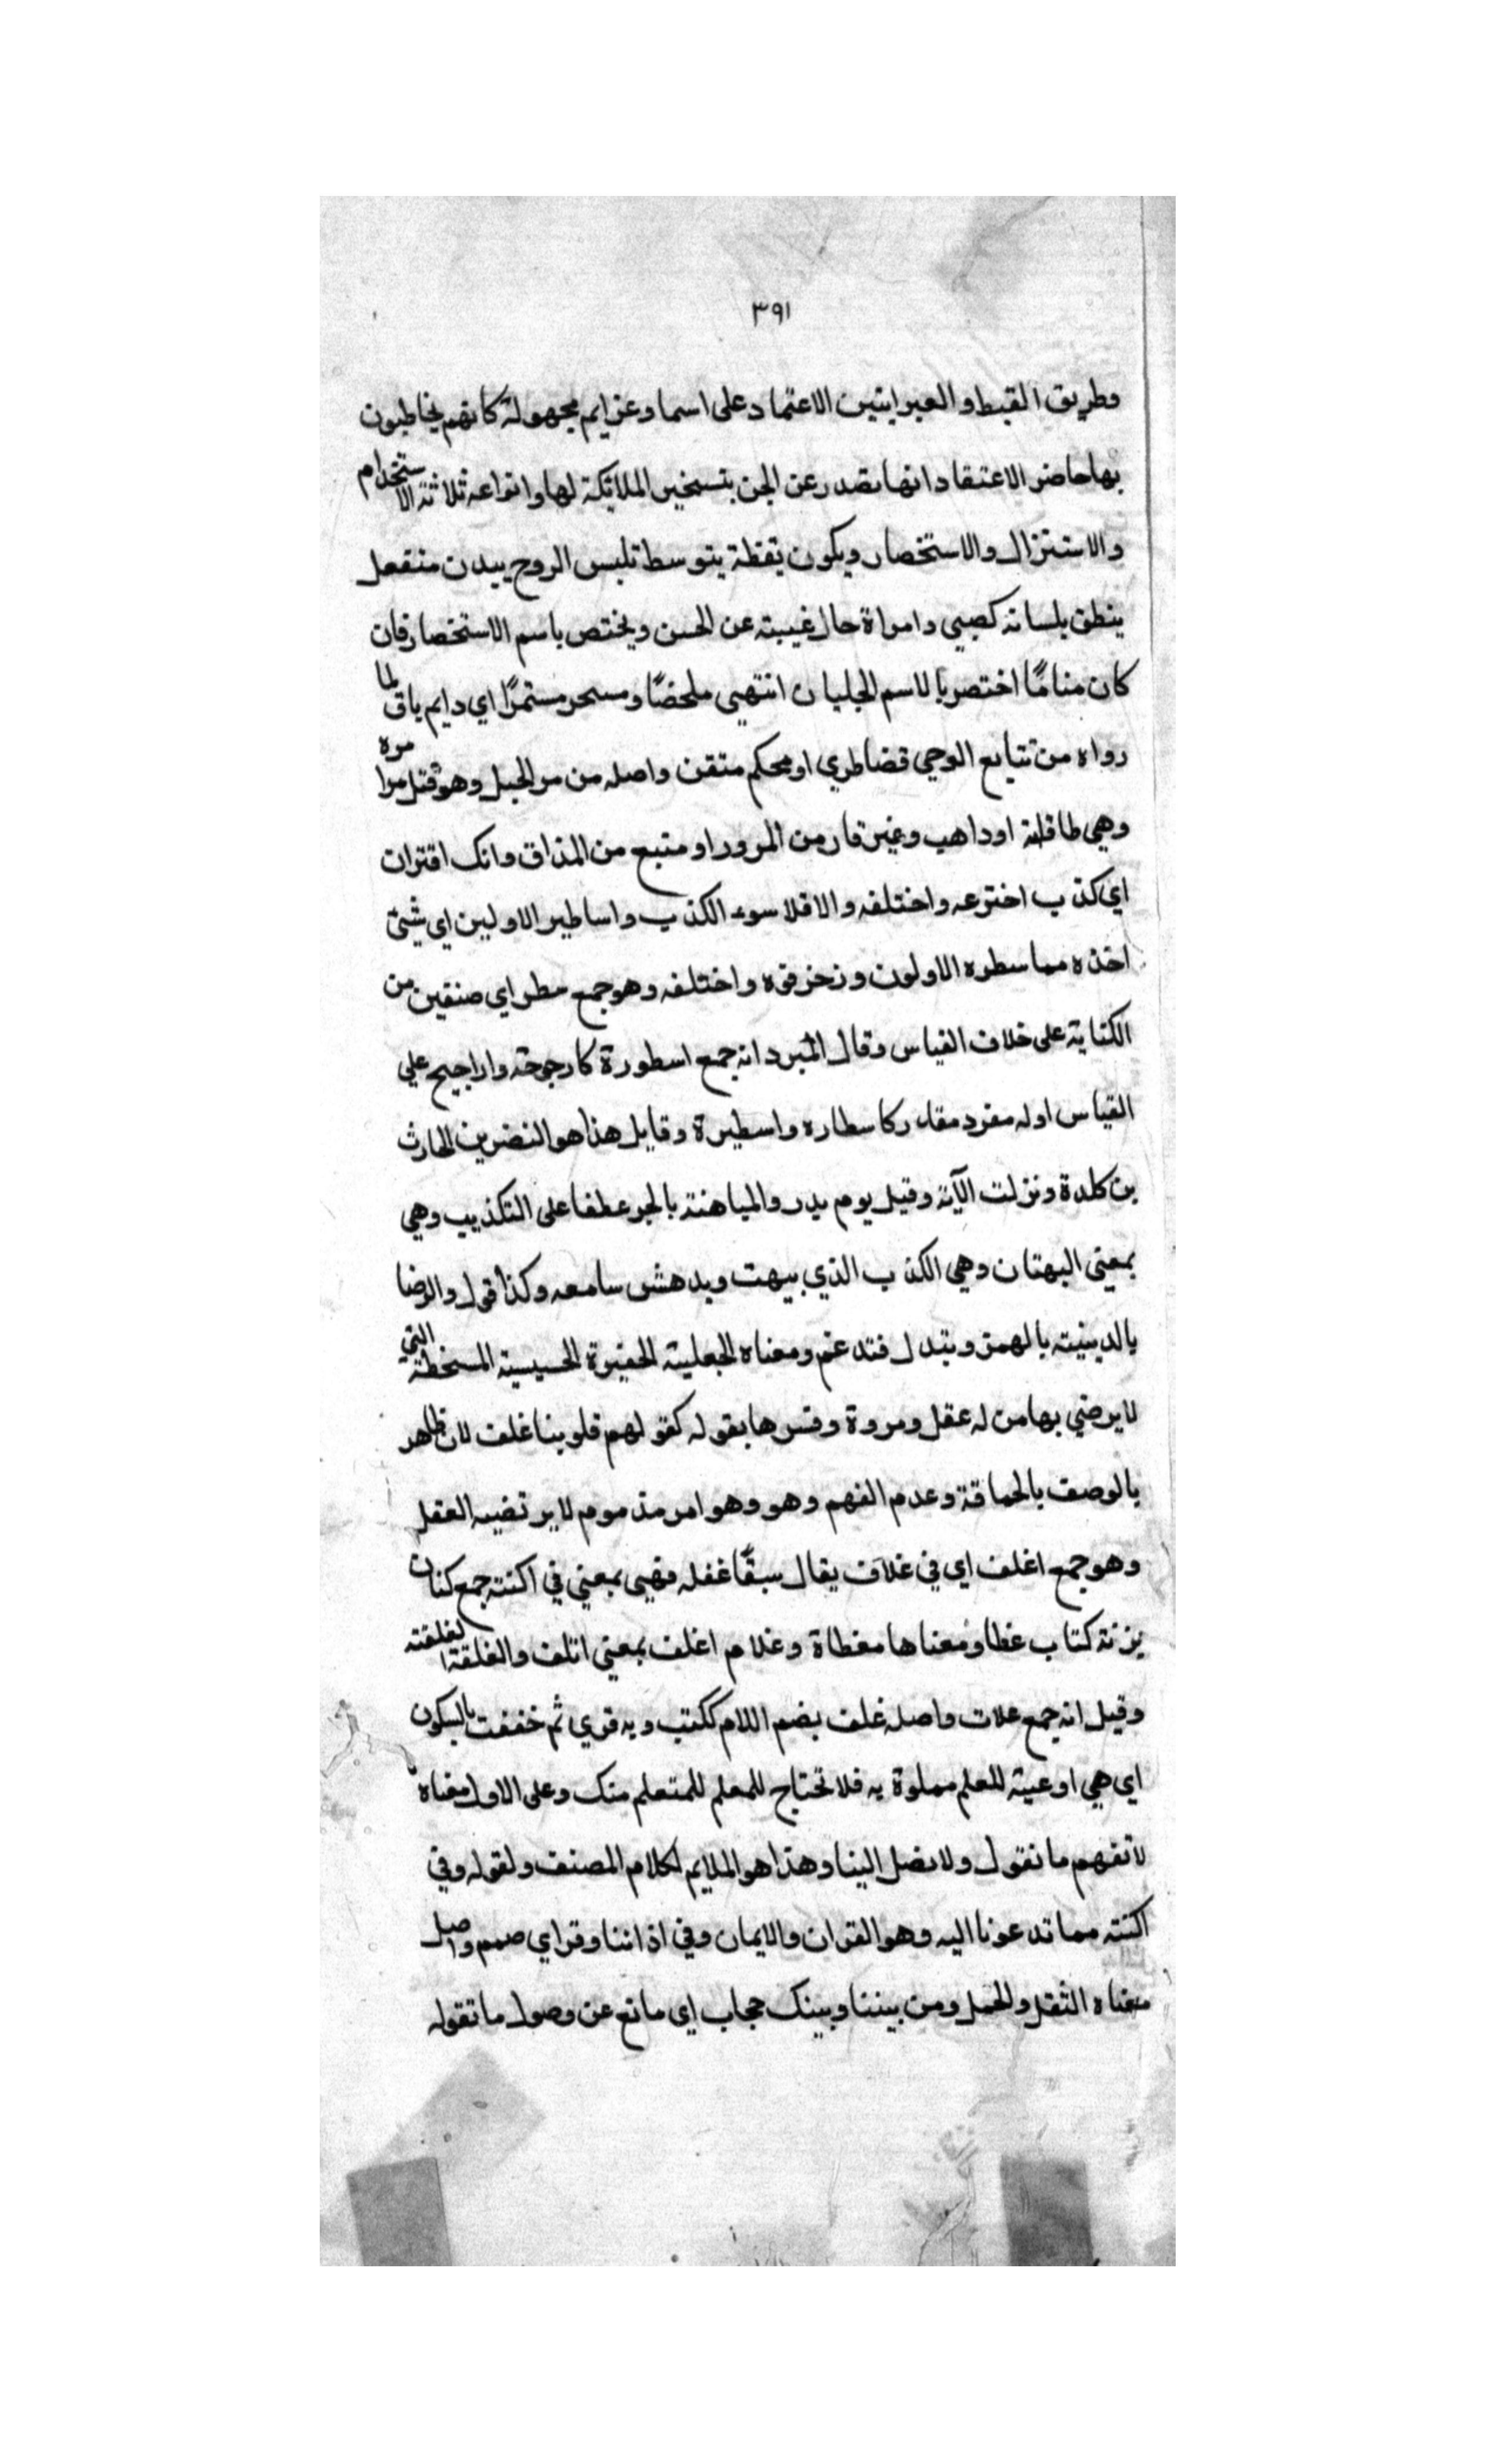 ٣٩١
وطريق القبط والعبرانيين الاعتماد على اسما وعزايم مجهولة كانهم يخاطبون
بها حاضر الاعتقاد انها تصدر عن الجن بتسخير الملائكة لها وانواعه ثلاثة الاستخدام
والاستنزال والاستخصار ويكون يقظة بتوسط تلبس الروح ببدن منفعل
ينطق بلسانه كصبي وامراة حال غيبته عن الحسن ويختص باسم الاستخصار فان
كان مناما اختصر بالاسم الجليان انتهيى ملخصًا وسحر مستمرًا اي دايم باق لما
رواه من تتايع الوحي قضا طري او محكم متقن واصله من مر الجبل وهو فتل مرا مره
وهي طاقاته او داهب وغير قار من المرور او متبع من المذاق وانك اقتران
اي كذب اخترعه واختلفه والافلا سوء الكذب واساطير الاولين اي شئ
اخذه مما سطره الاولون وزخرقوه واختلفه وهو جمع سطر اي صنفين من
الكتاية على خلاف القياس وقال المبرد انه جمع اسطورة كارجوحة واراجيح علي
القياس اوله مفرد مقدر كاسطاره واسطيرة وقايل هذا هو النضر بن الحارث
بن كلدة ونزلت الآية وقيل يوم بدر والمباهتة بالجر عطفا على التكذيب وهي
بمعنى البهتان وهي الكذب الذي يبهت ويدهش سامعه وكذا قول والرضا
بالدينيته بالهمزة وتبدل فتدغم ومعناه الجعلية الحقيرة الحسيسة المسخطة التي
لا يرضي بها من له عقل ومروة وفسرها بقوله كقولهم قلوبنا غلف لان ظاهر
بالوصف بالحماقة وعدم الفهم وهو وهو امر مذموم لا يرتضيه العقل
وهو جمع اغلف اي في غلاف يقال سبقًا غفله فهيى بمعني في اكنته جمع كنان
بزنة كتاب غطا ومعناها مغطاة وغلام اغلف بمعني اتلف والغلقة لغلفته
وقيل انه جمع علات واصله غلف بضم اللام ككتب وبه قري ثم خففت بالسكون
اي هي اوعية للعلم مملوة به فلا تحتاج للمعلم للمتعلم منك وعلى الاول معناه
لا تفهم ما نقول ولا بصل الينا وهذا هو الملايم لكلام المصنف ولقوله وفي
اكنته مما تدعونا اليه وهو القران والايمان وفي اذاننا وقر اي صمم واصل
معناه الثقل والحمل ومن بيننا وبينك حجاب اي مانع عن وصول ما تقوله